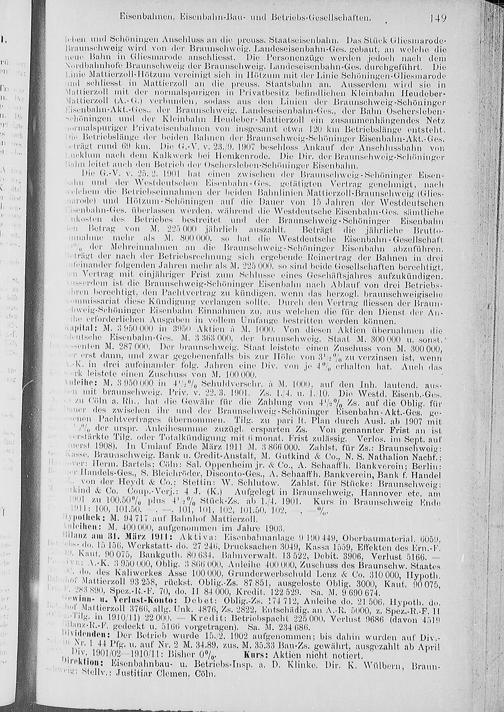 Eisenbahnen, Eisenbahn-Bau- und Betriebs-Gesellschaften. 149
und Schöningen Anschluss an die preuss. Staatseisenbahn. Das Stück Gliesmarode-
Braunschweig wird von der Braunschweig. Landeseisenbahn-Ges. gebaut, an welche die
neue Bahn in Gliesmarode anschliesst. Die Personenzüge werden jedoch nach dem
Nordbahnhofe Braunschweig der Braunschweig. Landeseisenbahn-Ges. durchgeführt. Die
Linie Mattierzoll-Hötzum vereinigt sich in Hötzum mit der Linie Schöningen-Gliesmarode
und schliesst in Mattierzoll an die preuss. Staatsbahn an. Ausserdem wird sie in
Mattierzoll mit der normalspurigen in Privatbesitz befindlichen Kleinbahn Heudeber-
Mattierzoll (A.-G.) verbunden, sodass aus den Linien der Braunschweig-Schöninger
Eisenbahn-Akt.-Ges., der Braunschweig. Landeseisenbahn-Ges., der Bahn Oschersleben-
Schöningen und der Kleinbahn Heudeber-Mattierzoll ein zusammenhängendes Netz
normalspuriger Privateisenbahnen von insgesamt etwa 120 km Betriebslänge entsteht.
Die Betriebslänge der beiden Bahnen der Braunschweig-Schöninger Eisenbahn-Akt.-Ges.
beträgt rund 69 km. Die G.-V. v. 23./9. 1907 beschloss Ankauf der Anschlussbahn von
nach dem Kalkwerk bei Hemkenrode. Die Dir. der Braunschweig-Schöninger
Bahn leitet auch den Betrieb der Oschersleben-Schöninger Eisenbahn.
Die G.-V. v. 25./2. 1901 hat einen zwischen der Braunschweig-Schöninger Eisen-
bahn und der Westdeutschen Eisenbahn-Ges. getätigten Vertrag genehmigt, nach
welchem die Betriebseinnahmen der beiden Bahnlinien Mattierzoll-Braunschweig (Glies-
marode) und Hötzum-Schöningen auf die Dauer von 15 Jahren der Westdeutschen
Eisenbahn-Ges. überlassen werden, während die Westdeutsche Eisenbahn-Ges. sämtliche
Unkosten des Betriebes bestreitet und der Braunschweig-Schöninger Eisenbahn
den Betrag von M. 225 000 jährlich auszahlt. Beträgt die jährliche Brutto-
einnahme mehr als M. 800 000, so hat die Westdeutsche Eisenbahn-Gesellschaft
% der Mehreinnahmen an die Braunschweig-Schöninger Eisenbahn abzuführen.
Beträgt der nach der Betriebsrechnung sich ergebende Reinertrag der Bahnen in drei
aufeinander folgenden Jahren mehr als M. 225 000, so sind beide Gesellschaften berechtigt,
den Vertrag mit einjähriger Frist zum Schlusse eines Geschäftsjahres aufzukündigen.
Ausserdem ist die Braunschweig-Schöninger Eisenbahn nach Ablauf von drei Betriebs-
jahren berechtigt, den Pachtvertrag zu kündigen, wenn das herzogl. braunschweigische
Kommissariat diese Kündigung verlangen sollte. Durch den Vertrag fliessen der Braun-
schweig-Schöninger Eisenbahn Einnahmen zu, aus welchen die für den Dienst der An-
leihe erforderlichen Ausgaben in vollem Umfange bestritten werden können.
Kapital: M. 3 950 000 in 3950 Aktien à M. 1000. Von diesen Aktien übernahmen die
Westdeutsche Eisenbahn-Ges. M. 3 363 000, der braunschweig. Staat M. 300 000 u. sonst.
M. 287 000. Der braunschweig. Staat leistete einen Zuschuss von M. 300 000,
der erst dann, und zwar gegebenenfalls bis zur Höhe von 3½% zu verzinsen ist, wenn
A.-K. in drei aufeinander folg. Jahren eine Div. von je 4% erhalten hat. Auch das
leistete einen Zuschuss von M. 100 000.
Anleihe: M. 3 950 000 in 4½% Schuldverschr. à M. 1000, auf den Inh. lautend, aus-
mit braunschweig. Priv. v. 22./3. 1901. Zs. 1./4. u. 1./10. Die Westd. Eisenb.-Ges.
zu Cöln a. Rh. hat die Gewähr für die Zahlung von 4½% Zs. auf die Oblig. für
Dauer des zwischen ihr und der Braunschweig-Schöninger Eisenbahn-Akt.-Ges. ge-
Pachtvertrages übernommen. Tilg. zu pari lt. Plan durch Ausl. ab 1907 mit
% der urspr. Anleihesumme zuzügl. ersparten Zs. Von genannter Frist an ist
verstärkte Tilg. oder Totalkündigung mit 6 monat. Frist zulässig. Verlos. im Sept. auf
(zuerst 1908). In Umlauf Ende März 1911 M. 3 866 000. Zahlst. für Zs.: Braunschweig:
Braunschweig. Bank u. Credit-Anstalt, M. Gutkind & Co., N. S. Nathalion Nachf.;
Herm. Bartels; Cöln: Sal. Oppenheim jr. & Co., A. Schaaffh. Bankverein; Berlin:
Handels-Ges., S. Bleichröder, Disconto-Ges., A. Schaaffh. Bankverein, Bank f. Handel
von der Heydt & Co.; Stettin: W. Schlutow. Zahlst. für Stücke: Braunschweig:
Gutkind & Co. Coup.-Verj.: 4 J. (K.) Aufgelegt in Braunschweig, Hannover etc. am
1901 zu 100.50% plus 4½% Stück-Zs. ab 1./4. 1901. Kurs in Braunschweig Ende
1911: 100, 101.50, —, 101, 101, 102, 101.50, 102, —%.
Hypothek: M. 94 717 auf Bahnhof Mattierzoll.
Anleihen: M. 400 000, aufgenommen im Jahre 1903.
Bilanz am 31. März 1911: Aktiva: Eisenbahnanlage 9 190 449, Oberbaumaterial. 6059,
do. 15 156, Werkstatt-do. 27 246, Drucksachen 3049, Kassa 1559, Effekten des Ern.-F.
Kaut. 90 075, Bankguth. 80 634, Bahnverwalt. 13 522, Debit. 3906, Verlust 5166. —
A.-K. 3 950 000, Oblig. 3 866 000, Anleihe 400 000, Zuschuss des Braunschw. Staates
do. des Kaliwerkes Asse 100 000, Grunderwerbschuld Lenz & Co. 310 000, Hypoth.
Mattierzoll 93 258, rückst. Oblig.-Zs. 87 851, ausgeloste Oblig. 3000, Kaut. 90 075,
283 890, Spez.-R.-F. 70, do. II 84 000, Kredit. 122 529. Sa. M. 9 690 674.
Gewinn- u. Verlust-Konto: Debet: Oblig.-Zs. 174 712, Anleihe do. 21 506, Hypoth. do.
Mattierzoll 3766, allg. Unk. 4876, Zs. 2822, Entschädig. an A.-R. 5000, z. Spez.-R.-F. II
Tilg. in 1910/11) 22 000. — Kredit: Betriebspacht 225 000, Verlust 9686 (davon 4519
R.-F. gedeckt u. 5166 vorgetragen). Sa. M. 234 686.
Dividenden: Der Betrieb wurde 15./2. 1902 aufgenommen; bis dahin wurden auf Div.-
Nr. 1 44 Pfg. u. auf Nr. 2 M. 34.89, zus. M. 35.33 Bau-Zs. gewährt, ausgezahlt ab April
Div. 1901/02—1910/11: Bisher 0%. Kurs: Aktien nicht notiert.
Direktion: Eisenbahnbau- u. Betriebs-Insp. a. D. Klinke, Dir. K. Wülbern, Braun-
schweig; Stellv.: Justitiar Clemen, Cöln.